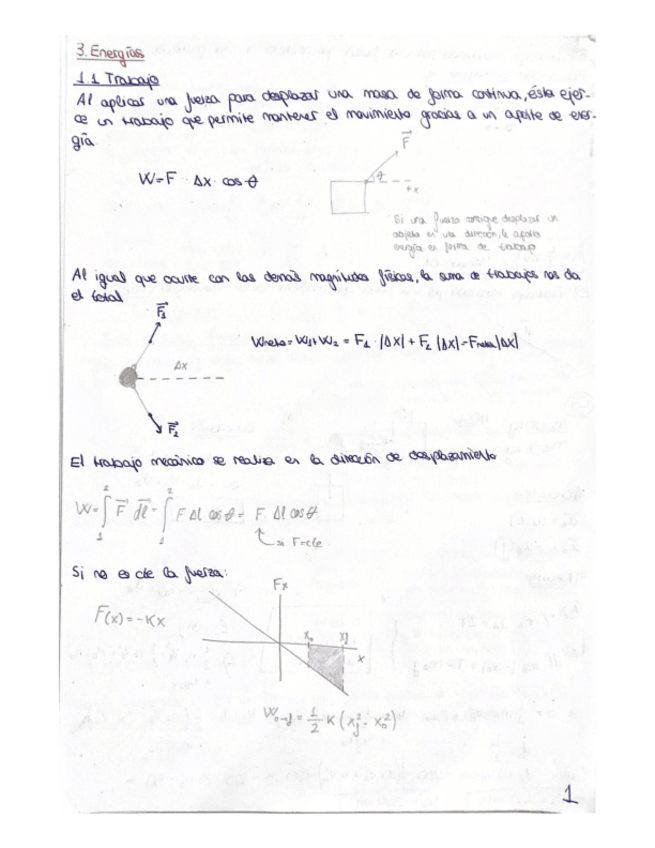 3. Energías
1.1 Trabajo
Al aplicar una fuerza para desplazar una masa de forma continua, ésta ejer-
ce un trabajo que permite mantener el movimiento gracias a un aporte de ener-
gía.
F
W=F · Δx · cos θ
θ
+x
Si una fuerza consigue desplazar un
objeto en una dirección, le aporta
energía en forma de trabajo
Al igual que ocurre con las demás magnitudes físicas, la suma de trabajos nos da
el total
F₁
Wneto = W1+W2 = F1 · |Δx| + F2 |Δx| = Fneta|Δx|
Δx
F₂
El trabajo mecánico se realiza en la dirección de desplazamiento
W = ∫₁² F dl = ∫₁² F Δl cos θ = F Δl cos θ
si F=cte
Si no es cte la fuerza:
Fx
F(x) = -Kx
x₀ xf
x
W₀→f = 1/2 K (xf² - x₀²)
1